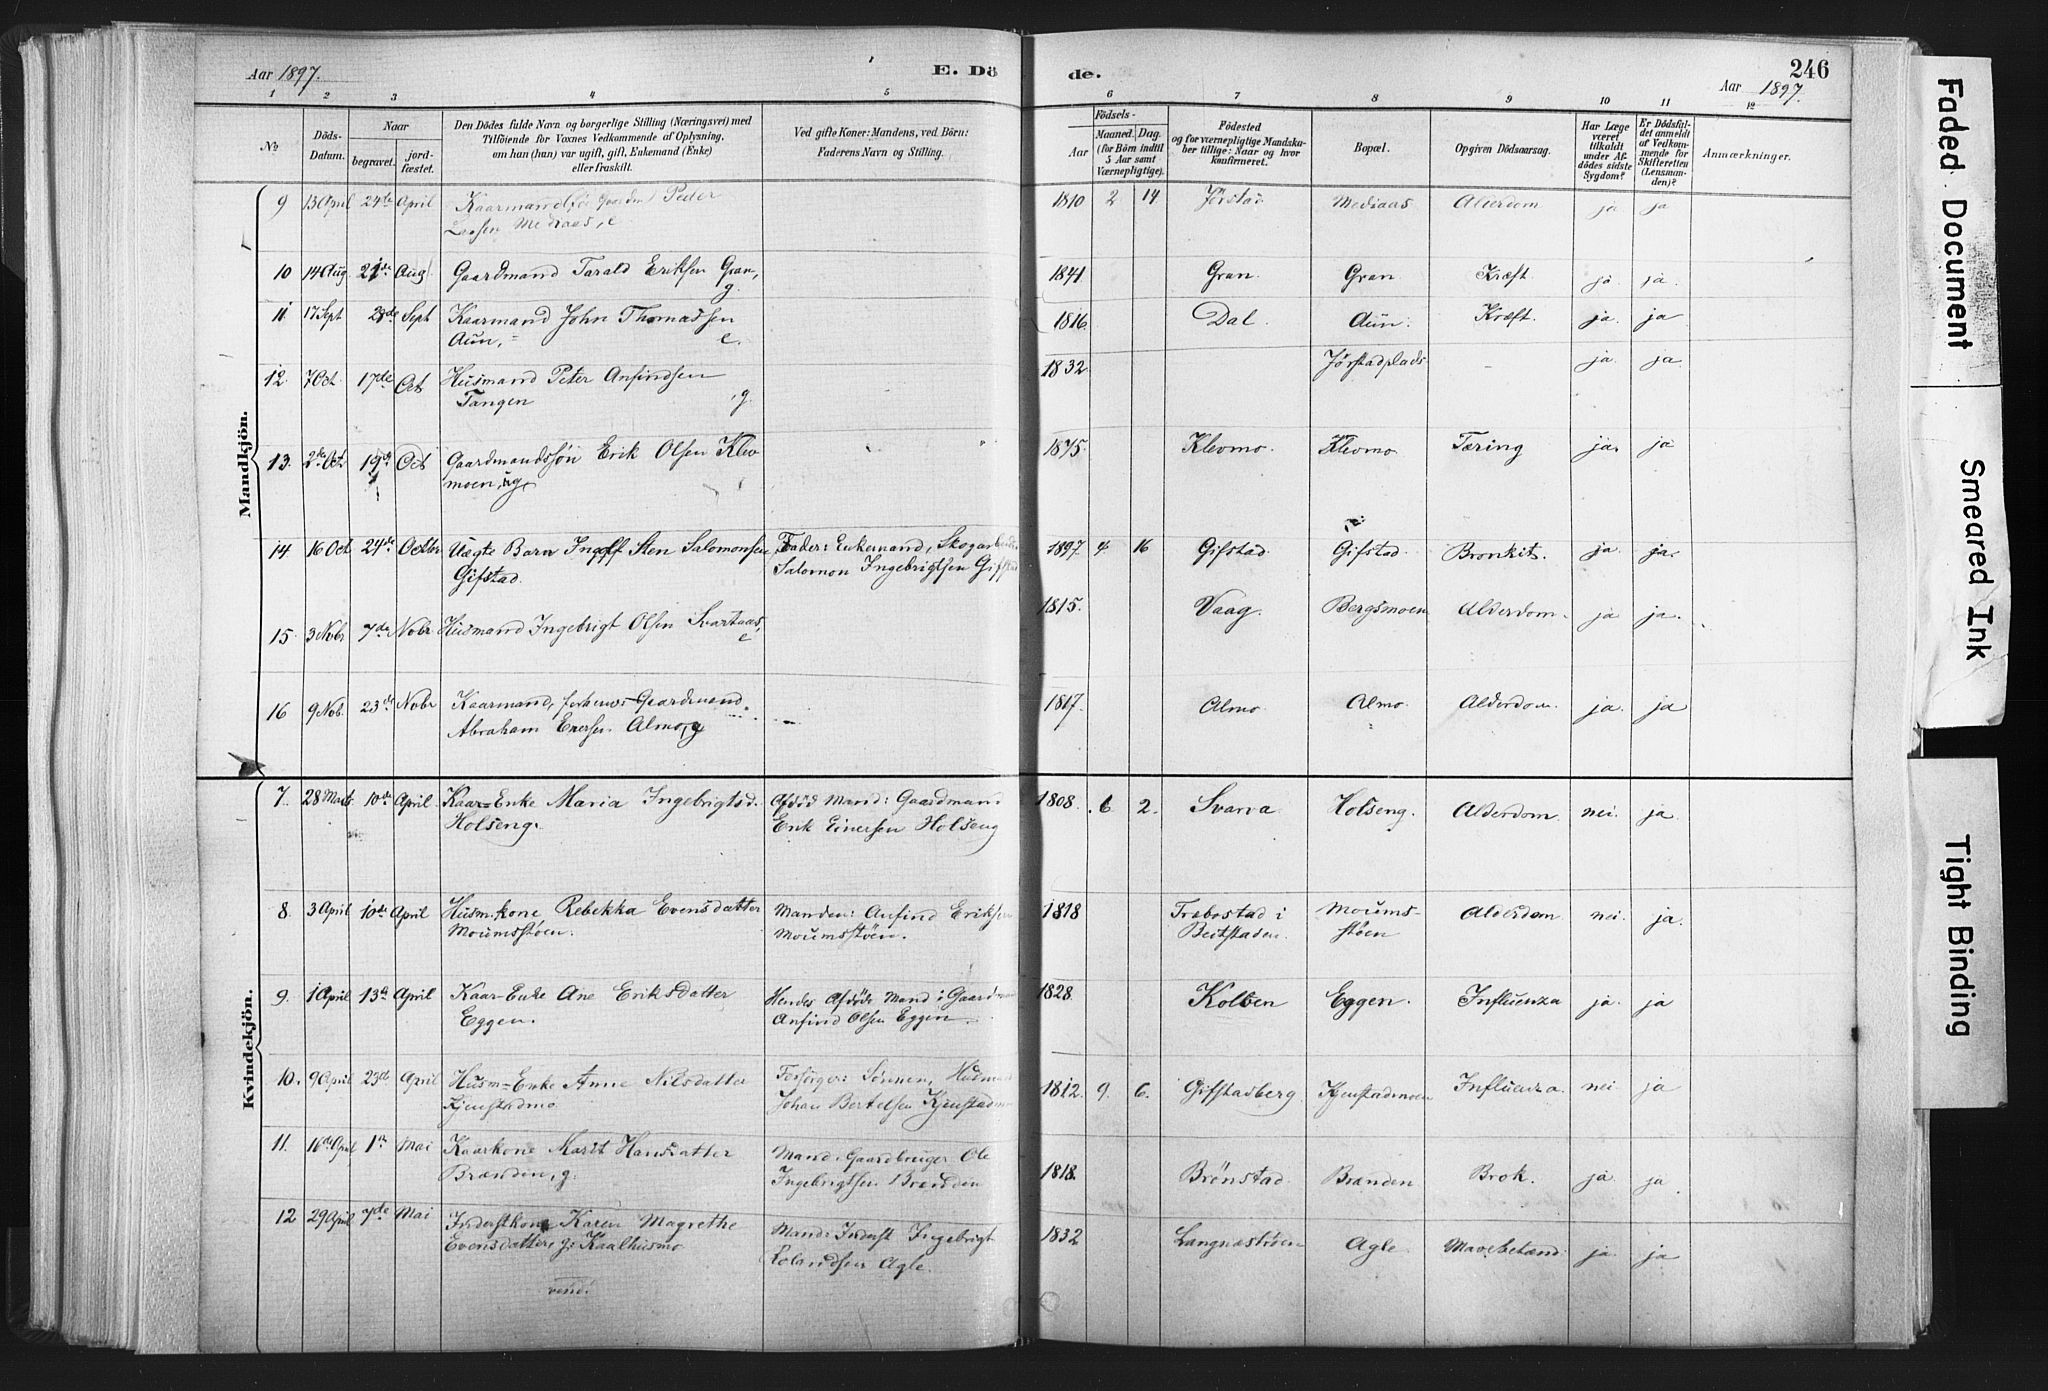 Aar 1897.
E. Dö
de.
246
Aar 1897.
1 2 3 4 5 6 7 8 9 10 11 12
No
Döds-
Datum.
Naar
begravet.
jord-
fæstet.
Den Dödes fulde Navn og borgerlige Stilling (Næringsvei) med
Tilföiende for Voxnes Vedkommende af Oplysning,
om han (hun) var ugift, gift, Enkemand (Enke)
eller fraskilt.
Ved gifte Koner: Mandens, ved Börn:
Faderens Navn og Stilling.
Födsels-
Aar
Maaned. Dag.
(for Börn indtil
5 Aar samt
Værnepligtige).
Födested
og for værnepligtige Mandska-
ber tillige: Naar og hvor
konfirmeret.
Bopæl.
Opgiven Dödsaarsag.
Har Læge
været
tilkaldt
under Af-
dödes sidste
Sygdom?
Er Dödsfal-
det anmeldt
af Vedkom-
mende for
Skifteretten
(Lensman-
den)?
Anmærkninger.
Mandkjön.
9 13 April 24de April Peder 1810 2 14 Jørstad Mediaas Alderdom ja ja
Mediaas, e
10 14 Aug. 21de Aug. Gaardmand Tarald Eriksen Gran, 1841 Gran. Gran. Kræft ja ja.
g.
11 17 Sept Sept Kaarmand John Thomassen 1816 Dal. Aun. Kræft. ja. ja
Aun, e.
12. 7 Oct. 17de Oct Husmand Peter Anfindsen 1832 Jørstadplads ja. ja.
Tangen , g.
13. Oct 19de Oct Gaardmandssøn Erik Olsen Klev 1875 Klevmo. Klevmo. Tæring ja. ja
moen, ug.
14 16 Oct 24de Octbr Uægte Barn Sten Salomonsen Fader: Enkemand, 1897 4 16 Gifstad. Gifstad. Bronkit. ja ja.
Gifstad. Salomon Ingebrigtsen
15. 3 Nobr 7de Nobr Husmand Ingebrigt Olsen Svartaas, 1815. Vaag. Bergsmoen Alderdom. ja ja.
e
16 9 Nob. 23de Nobr Kaarmand, Gaardmand 1817. Almo Almo. Alderdom. ja. ja
Abraham Almo, g
Kvindekjön.
7. 28 Marts 10de April Kaar-Enke Maria Ingebrigtsd. Afdød Mand: Gaardmand 1808. 6 2. Svarva Holseng. Alderdom. nei. ja.
Holseng. Erik Einersen Holseng
8. 3 April 10de April Husm.kone Rebekka Evensdatter Manden: Anfind 1818 i Moums- Alderdom nei. ja.
Moumsstøen. Moumsstøen. Beitstaden. støen
9. 1 April 13de April Kaar-Enke Ane Eriksdatter Hendes Afdøde Mand: 1828. Kolben Eggen. Influenza ja. ja
Eggen. Anfind Olsen Eggen
10. 9 April 23de April Husm-Enke Anne Nilsdatter Forsørger: Sønnen, 1812. 9. 6. Gifstadberg Kjenstadmoen Influenza. nei ja
Kjenstadmo. Johan Bertelsen
11. 16de April 1ste Mai Kaarkone Marit Hansdatter Mand: Gaardbruger Ole 1818. Brønstad. Brænden Brok. ja ja
Brænden, g. Ingebrigtsen Brænden
12 29 April 7de Mai Inderstkone Karen Magrethe Mand: Inderst Ingebrigt 1832 Langnæstøen Agle Mavebetænd. ja ja
Evensdatter, g: Kaalhusmo Agle.
vend!
Faded Document
Smeared Ink
Tight Binding